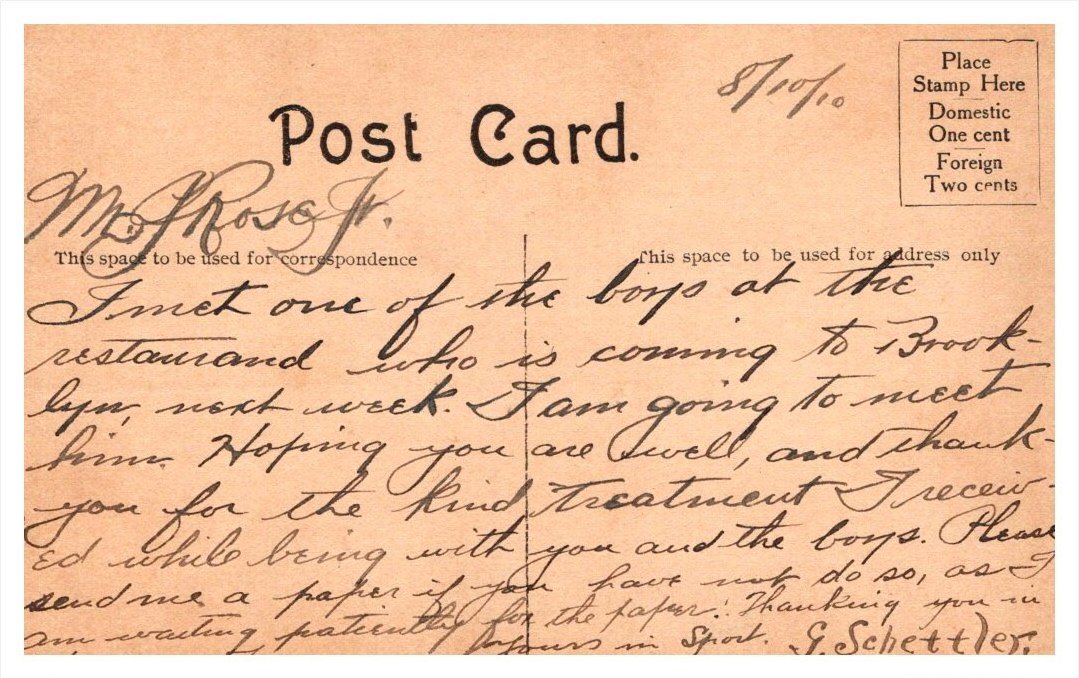 8/10/10
Place
Stamp Here
Domestic
One cent
Foreign
Two cents
Post Card.
Mr. J Rose Jr.
This space to be used for correspondence
This space to be used for address only
I met one of the boys at the
restaurand who is coming to Brook-
lyn, next week. I am going to meet
him. Hoping you are well, and thank-
you for the kind treatment I receiv-
ed while being with you and the boys. Please
send me a paper if you have not do so, as I
am waiting patiently for the paper. Thanking you in
Yours in Sport. G. Schettler.